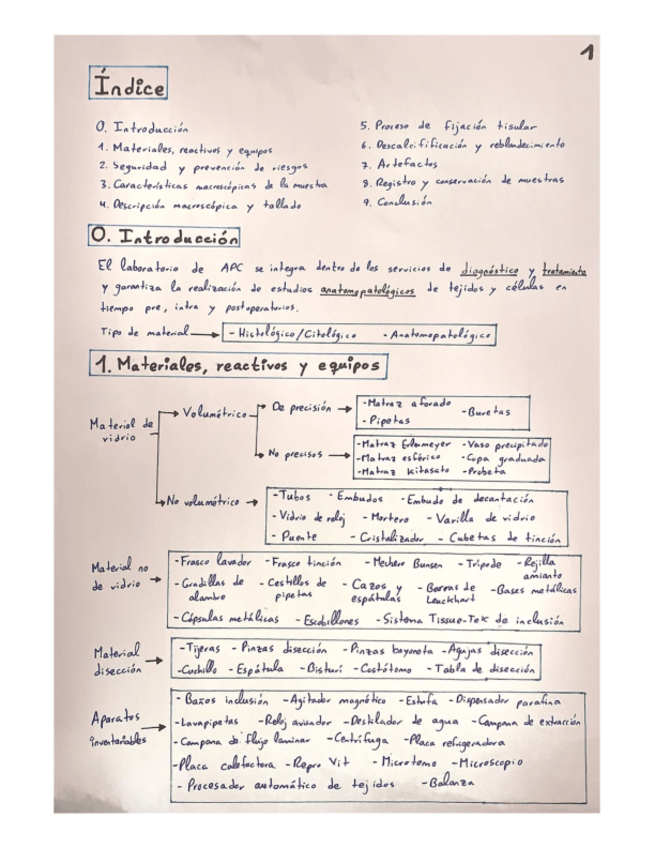 1
Índice
0. Introducción
1. Materiales, reactivos y equipos
2. Seguridad y prevención de riesgos
3. Características macroscópicas de la muestra
4. Descripción macroscópica y tallado
5. Proceso de fijación tisular
6. Descalcifificación y reblandecimiento
7. Artefactos
8. Registro y conservación de muestras
9. Conclusión
0. Introducción
El laboratorio de APC se integra dentro de los servicios de diagnóstico y tratamiento
y garantiza la realización de estudios anatomopatológicos de tejidos y células en
tiempo pre, intra y postoperatorios.
Tipo de material → - Histológico/Citológico - Anatomopatológico
1. Materiales, reactivos y equipos
Material de
vidrio
Volumétrico
De precisión → - Matraz aforado
- Buretas
- Pipetas
No precisos → - Matraz Erlenmeyer - Vaso precipitado
- Matraz esférico - Copa graduada
- Matraz Kitasato - Probeta
No volumétrico → - Tubos - Embudos - Embudo de decantación
- Vidrio de reloj - Mortero - Varilla de vidrio
- Puente - Cristalizador - Cubetas de tinción
Material no
de vidrio →
- Frasco lavador - Frasco tinción - Mechero Bunsen - Trípode - Rejilla
amianto
- Gradillas de
alambre
- Cestillos de
pipetas
- Cazos y
espátulas
- Barras de
Leuckhart
- Bases metálicas
- Cápsulas metálicas - Escobillones - Sistema Tissue-Tek de inclusión
Material
disección →
- Tijeras - Pinzas disección - Pinzas bayoneta - Agujas disección
- Cuchillo - Espátula - Bisturí - Costótomo - Tabla de disección
Aparatos
inventariables →
- Baños inclusión - Agitador magnético - Estufa - Dispensador parafina
- Lavapipetas - Reloj avisador - Destilador de agua - Campana de extracción
- Campana de flujo laminar - Centrífuga - Placa refrigeradora
- Placa calefactora - Repro Vit - Microtomo - Microscopio
- Procesador automático de tejidos - Balanza